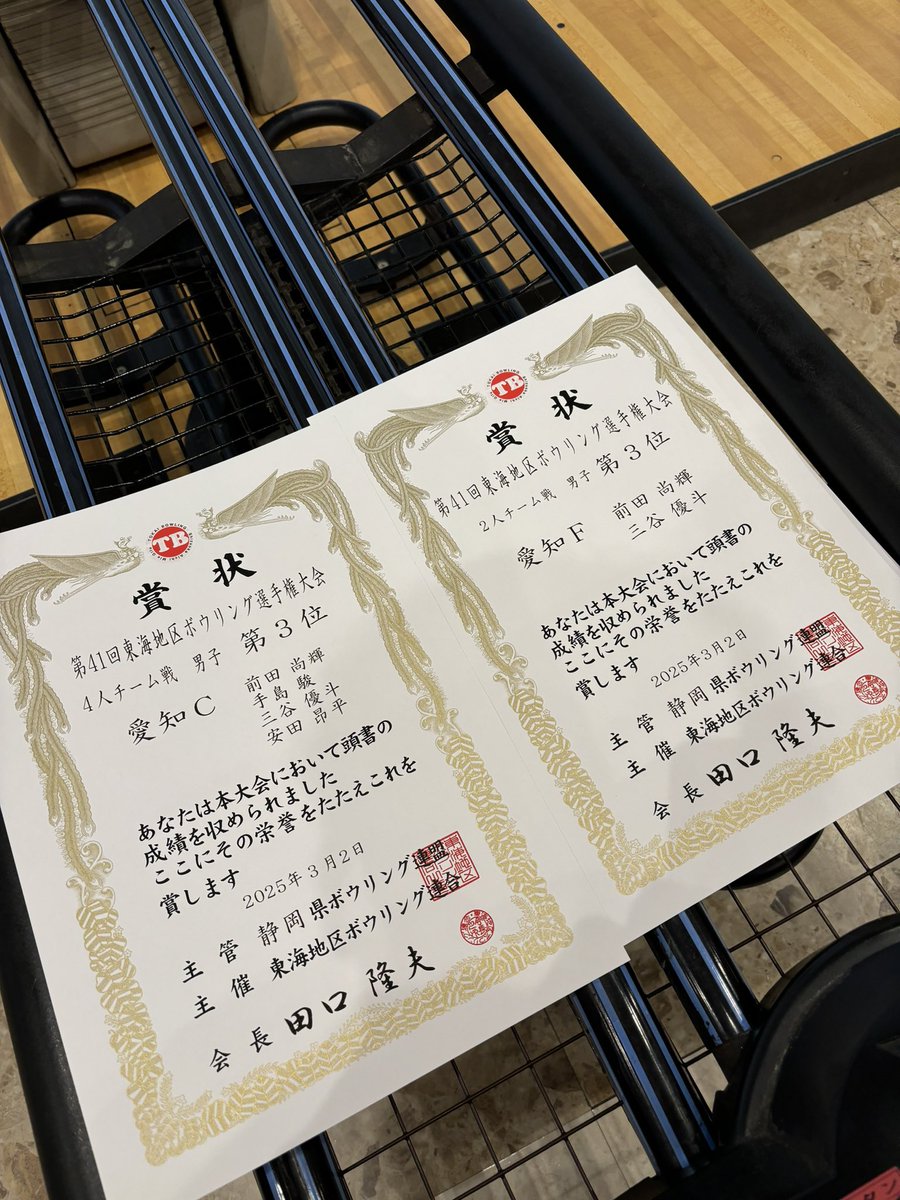 TB
賞状
第41回東海地区ボウリング選手権大会
4人チーム戦 男子 第3位
愛知C
前田 尚輝
手島 駿
三谷 優斗
安田 昂平
あなたは本大会において頭書の
成績を収められました
ここにその栄誉をたたえこれを
賞します
2025年3月2日
主管 静岡県ボウリング連盟
主催 東海地区ボウリング連合
会長 田口 隆夫
TB
賞状
第41回東海地区ボウリング選手権大会
2人チーム戦 男子 第3位
愛知F
前田 尚輝
三谷 優斗
あなたは本大会において頭書の
成績を収められました
ここにその栄誉をたたえこれを
賞します
2025年3月2日
主管 静岡県ボウリング連盟
主催 東海地区ボウリング連合
会長 田口 隆夫